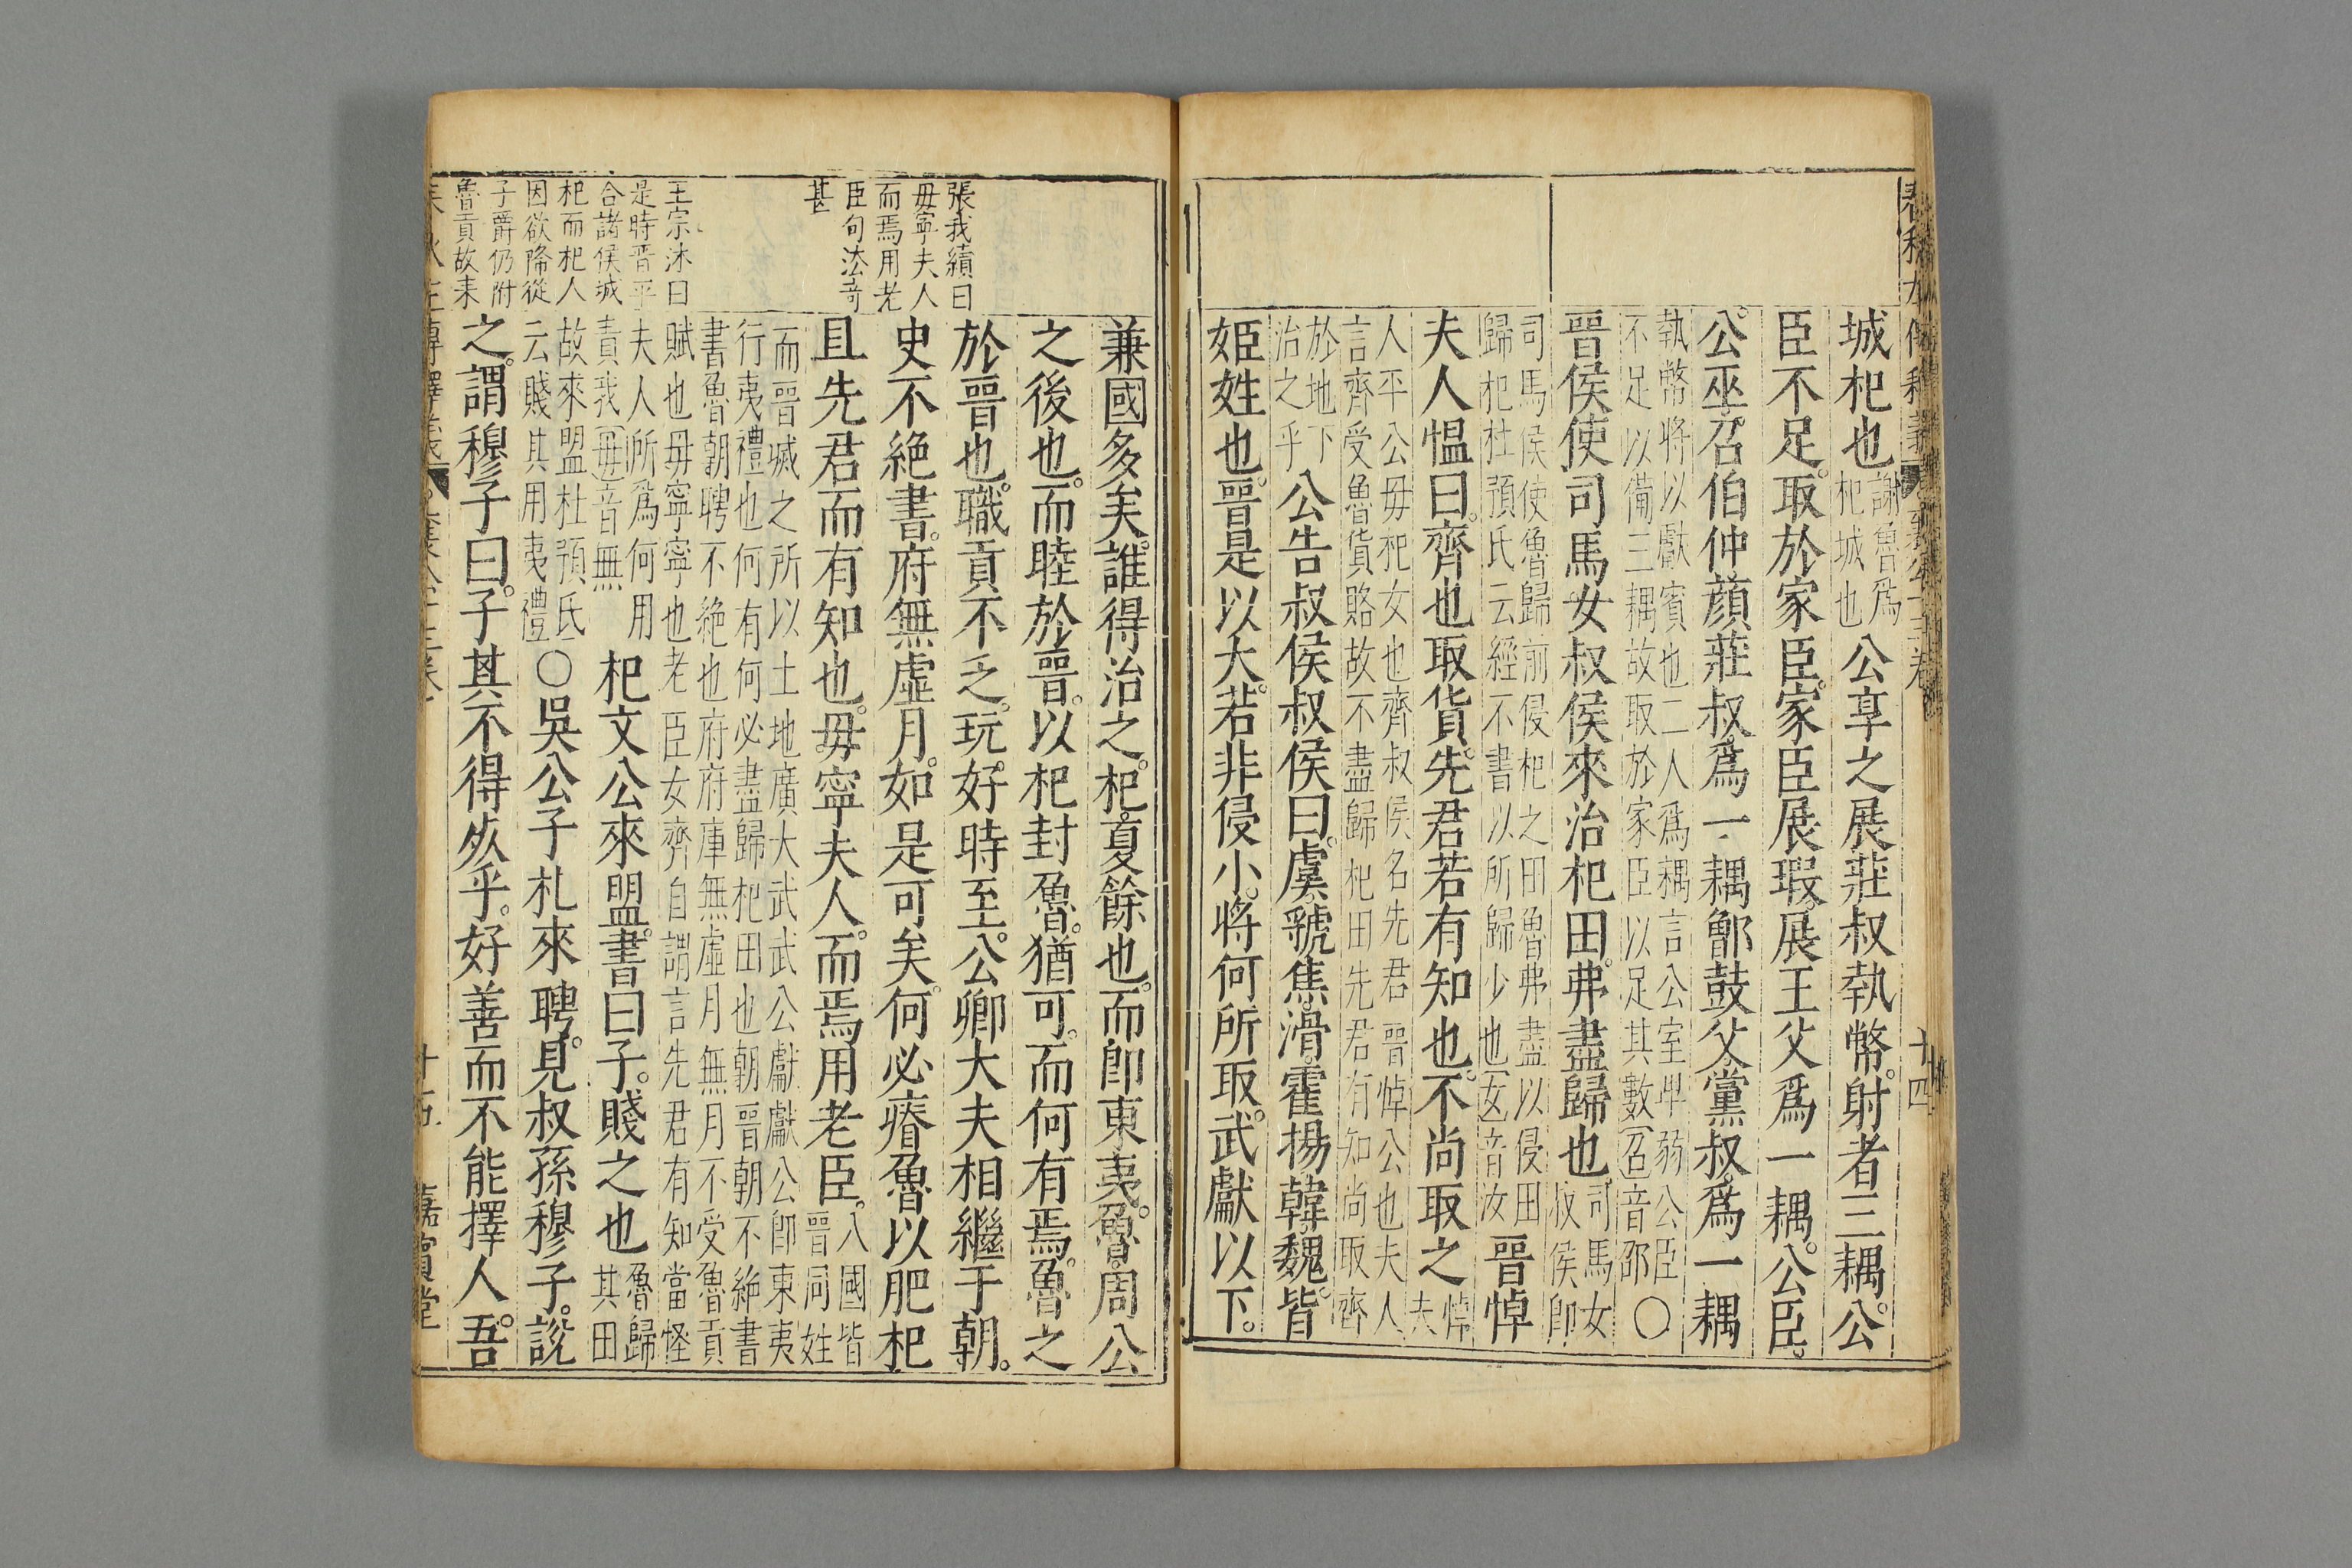 城杞也謝魯爲杞城也公享之展莊叔執幣。射者三耦。公
臣不足。取於家臣。家臣展瑕。展王父爲一耦。公臣。
公巫。召伯仲顔莊叔。爲一耦鄫鼓父。黨叔。爲一耦
執幣將以獻賓也二人爲耦言公室卑弱公臣
不足以備三耦故取於家臣以足其數召音邵〇
晉侯使司馬。女叔侯來治杞田。弗盡歸也司馬女叔侯卽
司馬侯使魯歸前侵杞之田魯弗盡以侵田
歸杞杜預氏云經不書以所歸少也女音汝晉悼
夫人慍曰。齊也取貨。先君若有知也。不尚取之悼夫
人平公母杞女也齊叔侯名先君晉悼公也夫人
言齊受魯貨賂故不盡歸杞田先君有知尚取齊
於地下治之乎公告叔侯叔侯曰。虞。虢焦。滑。霍揚韓。魏。皆
姬姓也。晉是以大。若非侵小。將何所取。武獻以下。
兼國多矣。誰得治之。杞。夏餘也。而卽東夷。魯。周公
之後也。而睦於晉。以杞封魯。猶可。而何有焉。魯之
於晉也。職貢不乏。玩。好時至。公卿大夫相繼于朝。
史不絕書。府無虛月。如是可矣。何必瘠魯以肥杞
且先君而有知也。毋寧夫人。而焉用老臣。八國皆晉同姓
而晉滅之所以土地廣大武武公獻獻公卽東夷
行夷禮也何有何必盡歸杞田也朝晉朝不絶書
書魯朝聘不絶也府府庫無虛月無月不受魯貢
賦也毋寧寧也老臣女齊自謂言先君有知當怪
夫人所爲何用責我毋音無杞文公來盟。書曰子。賤之也魯歸其田
故來盟杜預氏云賤其用夷禮〇吳公子札來聘。見叔孫穆子。說
之。謂穆子曰。子其不得死乎。好善而不能擇人。吾。
張我績曰
毋寧夫人
而焉用老
臣句法奇
甚
王宗沐曰
是時晉平
合諸侯城
杞而杞人
因欲降從
子爵仍附
魯貢故来
十五